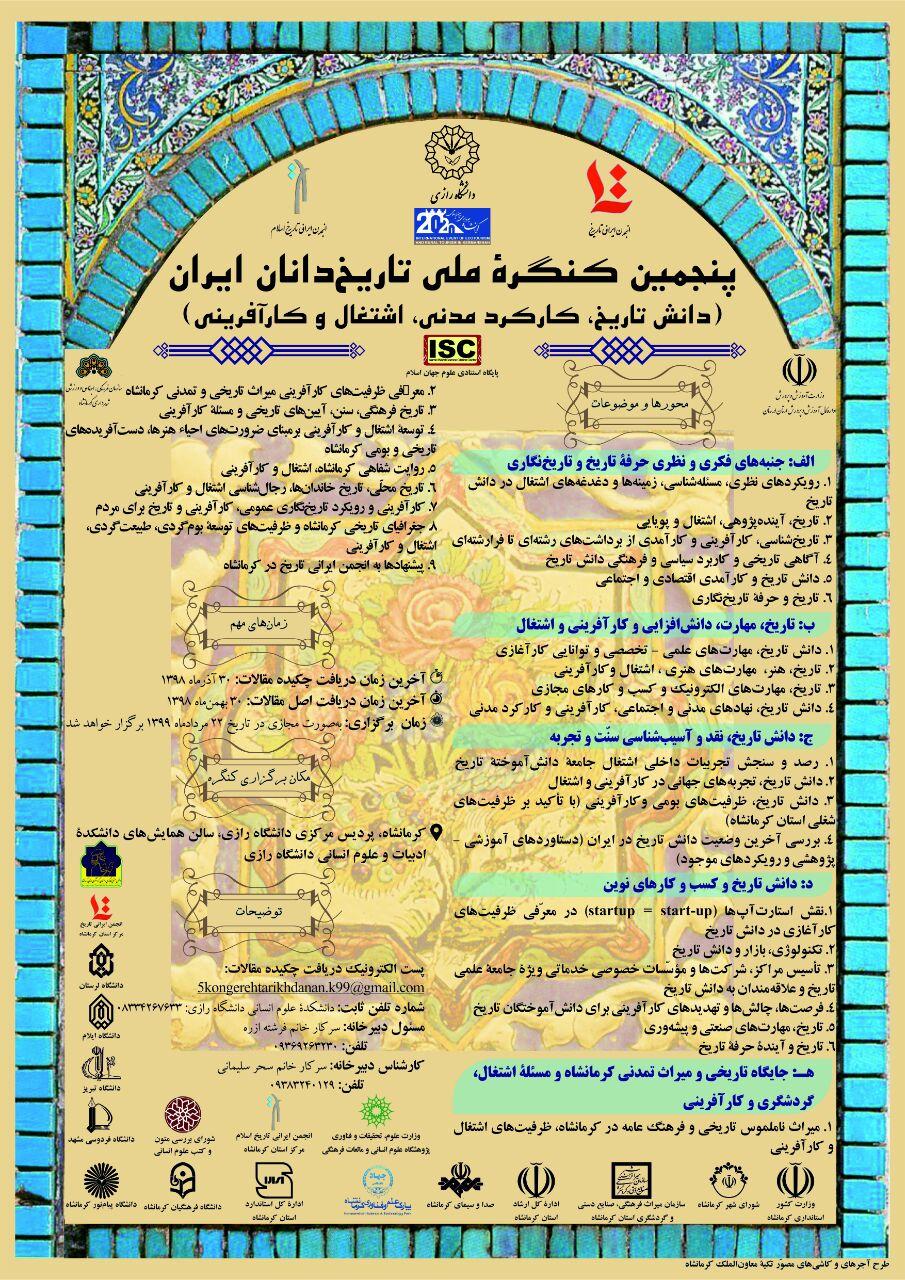 دانشگاه رازی
انجمن ایرانی تاریخ
انجمن ایرانی تاریخ اسلام
2020
INTERNATIONAL EVENT OF ECOTOURISM
AND RURAL TOURISM IN KERMANSHAH
پنجمین کنگرهٔ ملی تاریخ‌دانان ایران
(دانش تاریخ، کارکرد مدنی، اشتغال و کارآفرینی)
ISC
پایگاه استنادی علوم جهان اسلام
وزارت آموزش و پرورش
محورها و موضوعات
الف: جنبه‌های فکری و نظری حرفهٔ تاریخ و تاریخ‌نگاری
۱. رویکردهای نظری، مسئله‌شناسی، زمینه‌ها و دغدغه‌های اشتغال در دانش
تاریخ
۲. تاریخ، آینده‌پژوهی، اشتغال و پویایی
۳. تاریخ‌شناسی، کارآفرینی و کارآمدی از برداشت‌های رشته‌ای تا فرارشته‌ای
۴. آگاهی تاریخی و کاربرد سیاسی و فرهنگی دانش تاریخ
۵. دانش تاریخ و کارآمدی اقتصادی و اجتماعی
۶. تاریخ و حرفهٔ تاریخ‌نگاری
ب: تاریخ، مهارت، دانش‌افزایی و کارآفرینی و اشتغال
۱. دانش تاریخ، مهارت‌های علمی - تخصصی و توانایی کارآغازی
۲. تاریخ، هنر، مهارت‌های هنری ، اشتغال وکارآفرینی
۳. تاریخ، مهارت‌های الکترونیک و کسب و کارهای مجازی
۴. دانش تاریخ، نهادهای مدنی و اجتماعی، کارآفرینی و کارکرد مدنی
ج: دانش تاریخ، نقد و آسیب‌شناسی سنّت و تجربه
۱. رصد و سنجش تجربیات داخلی اشتغال جامعهٔ دانش‌آموختهٔ تاریخ
۲. دانش تاریخ، تجربه‌های جهانی در کارآفرینی و اشتغال
۳. دانش تاریخ، ظرفیت‌های بومی وکارآفرینی (با تأکید بر ظرفیت‌های
شغلی استان کرمانشاه)
۴. بررسی آخرین وضعیت دانش تاریخ در ایران (دستاوردهای آموزشی -
پژوهشی و رویکردهای موجود)
د: دانش تاریخ و کسب و کارهای نوین
۱.نقش استارت‌آپ‌ها (startup = start-up) در معرّفی ظرفیت‌های
کارآغازی در دانش تاریخ
۲. تکنولوژی، بازار و دانش تاریخ
۳. تأسیس مراکز، شرکت‌ها و مؤسّسات خصوصی خدماتی ویژهٔ جامعهٔ علمی
تاریخ و علاقه‌مندان به دانش تاریخ
۴. فرصت‌ها، چالش‌ها و تهدیدهای کارآفرینی برای دانش‌آموختگان تاریخ
۵. تاریخ، مهارت‌های صنعتی و پیشه‌وری
۶. تاریخ و آیندهٔ حرفهٔ تاریخ
هـ: جایگاه تاریخی و میراث تمدنی کرمانشاه و مسئلهٔ اشتغال،
گردشگری و کارآفرینی
۱. میراث ناملموس تاریخی و فرهنگ عامه در کرمانشاه، ظرفیت‌های اشتغال
و کارآفرینی
۲. معرّفی ظرفیت‌های کارآفرینی میراث تاریخی و تمدنی کرمانشاه
۳. تاریخ فرهنگی، سنن، آیین‌های تاریخی و مسئلهٔ کارآفرینی
۴. توسعهٔ اشتغال و کارآفرینی برمبنای ضرورت‌های احیاء هنرها، دست‌آفریده‌های
تاریخی و بومی کرمانشاه
۵. روایت شفاهی کرمانشاه، اشتغال و کارآفرینی
۶. تاریخ محلّی، تاریخ خاندان‌ها، رجال‌شناسی اشتغال و کارآفرینی
۷. کارآفرینی و رویکرد تاریخ‌نگاری عمومی، کارآفرینی و تاریخ برای مردم
۸. جغرافیای تاریخی کرمانشاه و ظرفیت‌های توسعهٔ بوم‌گردی، طبیعت‌گردی،
اشتغال و کارآفرینی
۹. پیشنهادها به انجمن ایرانی تاریخ در کرمانشاه
زمان‌های مهم
آخرین زمان دریافت چکیده مقالات: ۳۰ آذرماه ۱۳۹۸
آخرین زمان دریافت اصل مقالات: ۳۰ بهمن‌ماه ۱۳۹۸
زمان برگزاری: به‌صورت مجازی در تاریخ ۲۲ مردادماه ۱۳۹۹ برگزار خواهد شد
مکان برگزاری کنگره
کرمانشاه، پردیس مرکزی دانشگاه رازی، سالن همایش‌های دانشکدهٔ
ادبیات و علوم انسانی دانشگاه رازی
توضیحات
پست الکترونیک دریافت چکیده مقالات:
5kongerehtarikhdanan.k99@gmail.com
شماره تلفن ثابت: دانشکدهٔ علوم انسانی دانشگاه رازی: ۰۸۳۳۴۲۶۷۶۳۳
مسئول دبیرخانه: سرکار خانم فرشته ازره
تلفن: ۰۹۳۶۹۲۶۳۲۳۰
کارشناس دبیرخانه: سرکار خانم سحر سلیمانی
تلفن: ۰۹۳۸۳۲۴۰۱۲۹
انجمن ایرانی تاریخ
مرکز استان کرمانشاه
دانشگاه لرستان
دانشگاه ایلام
دانشگاه تبریز
دانشگاه فردوسی مشهد
شورای بررسی متون
و کتب علوم انسانی
انجمن ایرانی تاریخ اسلام
مرکز استان کرمانشاه
وزارت علوم، تحقیقات و فناوری
پژوهشگاه علوم انسانی و مطالعات فرهنگی
وزارت کشور
استانداری کرمانشاه
شورای شهر کرمانشاه
سازمان میراث فرهنگی، صنایع دستی
و گردشگری استان کرمانشاه
ادارهٔ کل ارشاد
استان کرمانشاه
صدا و سیمای کرمانشاه
ادارهٔ کل استاندارد
استان کرمانشاه
دانشگاه فرهنگیان کرمانشاه
دانشگاه پیام‌نور کرمانشاه
طرح آجرهای و کاشی‌های مصوّر تکیهٔ معاون‌الملک کرمانشاه